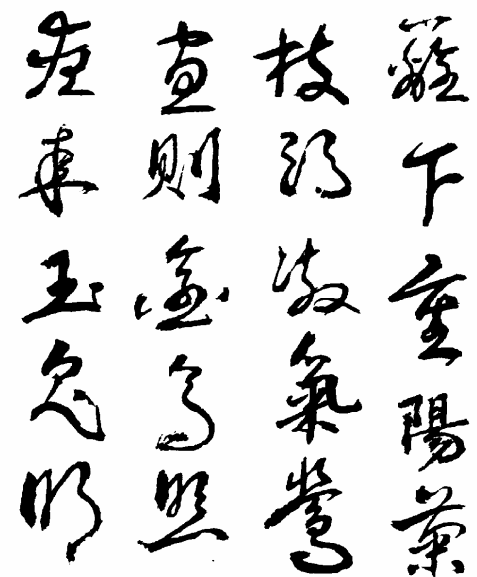 籬下重陽菊
枝頭淑氣鶯
晝則金烏照
夜來玉兔明